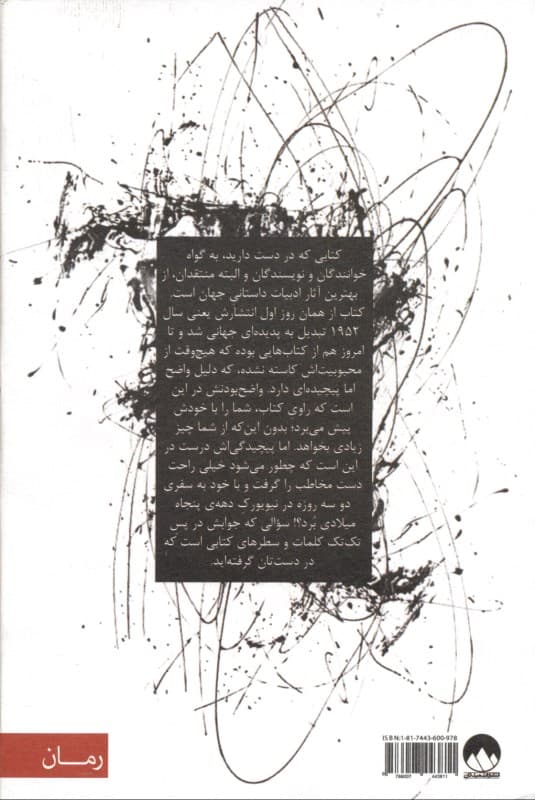 کتابی که در دست دارید، به گواه
خوانندگان و نویسندگان و البته منتقدان، از
بهترین آثار ادبیات داستانی جهان است.
کتاب از همان روز اول انتشارش یعنی سال
۱۹۵۲ تبدیل به پدیده‌ای جهانی شد و تا
امروز هم از کتاب‌هایی بوده که هیچ‌وقت از
محبوبیت‌اش کاسته نشده، که دلیل واضح
اما پیچیده‌ای دارد. واضح‌بودنش در این
است که راوی کتاب، شما را با خودش
پیش می‌برد؛ بدون این‌که از شما چیز
زیادی بخواهد. اما پیچیدگی‌اش درست در
این است که چطور می‌شود خیلی راحت
دست مخاطب را گرفت و با خود به سفری
دو سه روزه در نیویورکِ دهه‌ی پنجاه
میلادی بُرد؟! سؤالی که جوابش در پس
تک‌تک کلمات و سطرهای کتابی است که
در دست‌تان گرفته‌اید.
رمـــان
ISBN:1-81-7443-600-978